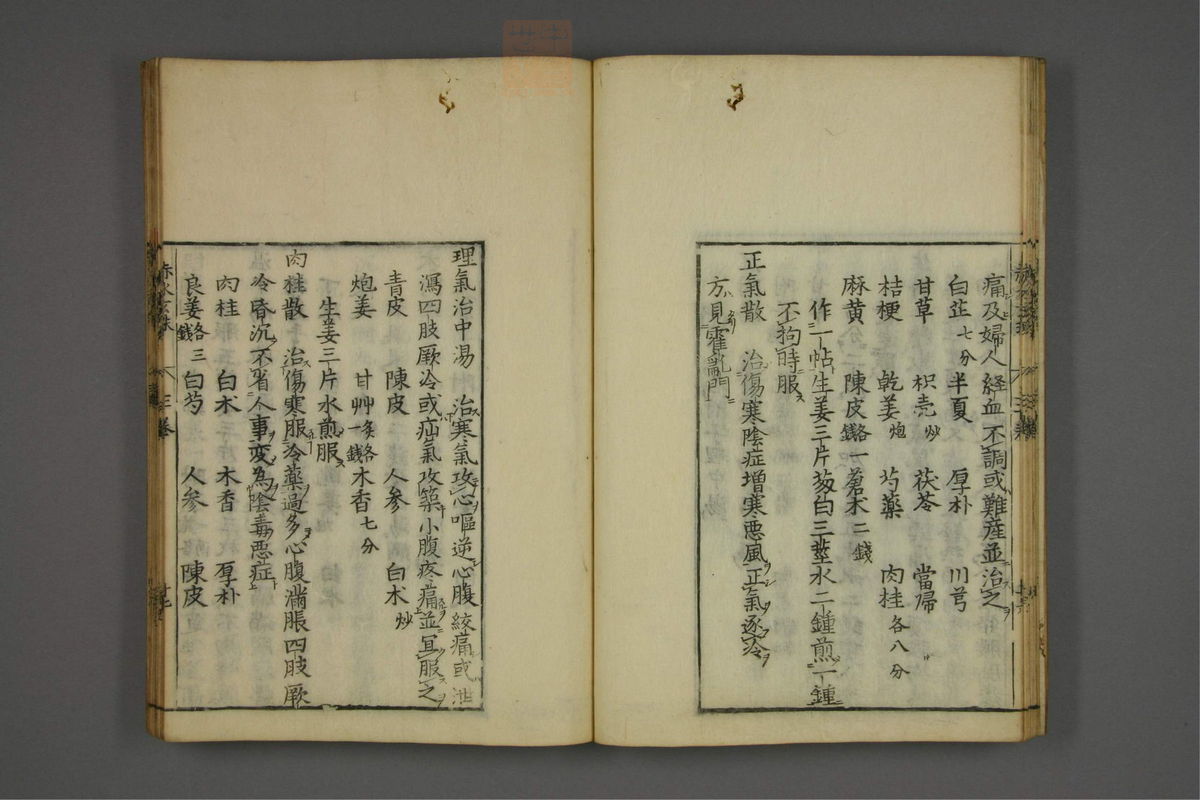 痛及婦人経血不調或難産並治之
白芷七分 半夏 厚朴 川芎
甘草 枳壳炒 茯苓 當帰
桔梗 乾姜炮 芍藥 肉桂各八分
麻黄二分 陳皮各一錢 蒼朮二錢
作一帖生姜三片葱白三莖水二鍾煎一鍾
不拘時服
正氣散 治傷寒陰症増寒悪風正氣逐冷
方見霍亂門
理氣治中湯 治寒氣攻心嘔逆心腹絞痛或泄
瀉四肢厥冷或疝氣攻築小腹疼痛並宜服之
青皮 陳皮 人参 白朮炒
炮姜 甘艸炙各一錢 木香七分
生姜三片水煎服
肉桂散 治傷寒服冷藥過多心腹滿脹四肢厥
冷昏沉不省人事変為陰毒悪症
肉桂 白朮 木香 厚朴
良姜各三錢 白芍 人参 陳皮
三卷